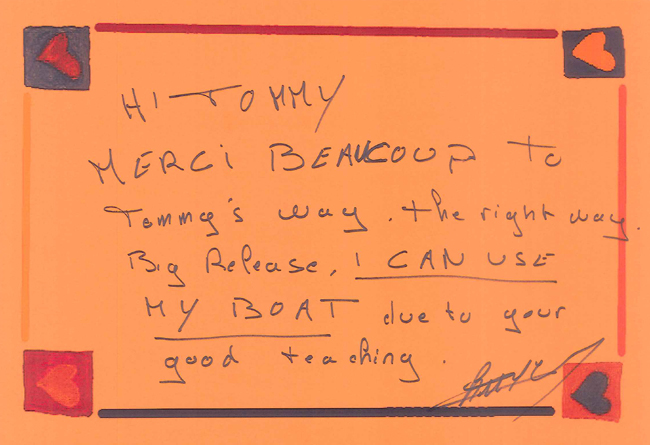 HI TOMMY
MERCi BEAUCOUP to
Tommy's way. the right way.
Big Release, I CAN USE
MY BOAT due to your
good teaching.